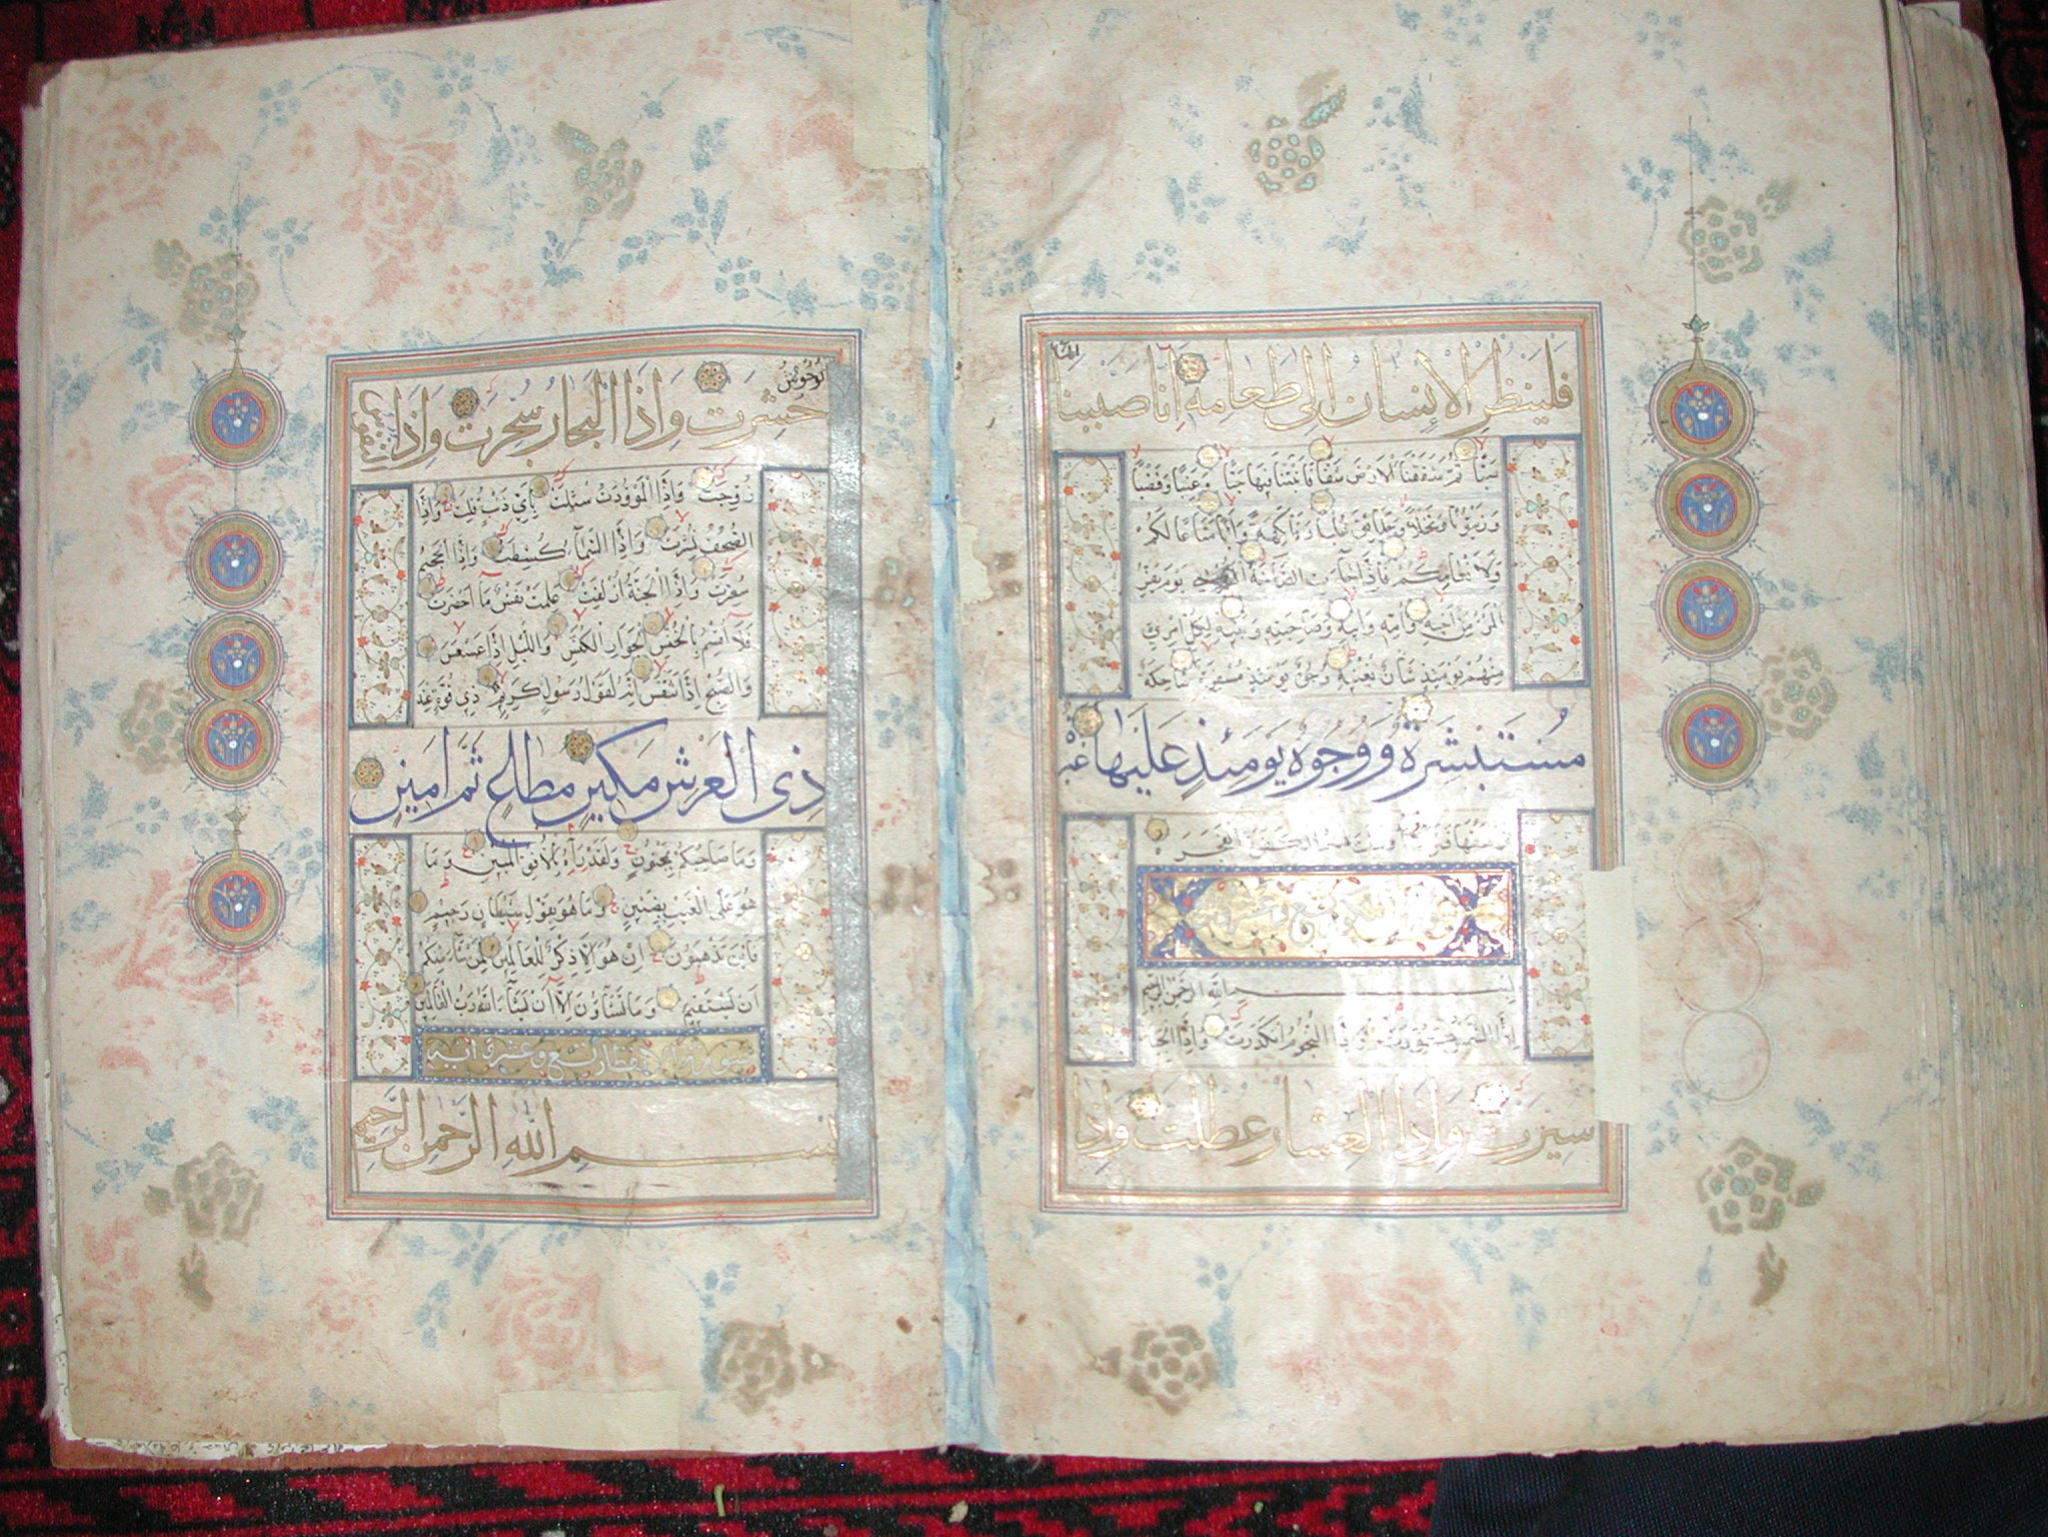 فلينظر الإنسان إلى طعامه انا صببنا
الماء
ثم شققنا الارض شقا فانبتنا فيها حبا وعنبا وقضبا
وزيتونا ونخلا وحدائق غلبا وفاكهة وابا متاعا لكم
ولانعامكم فاذا جاءت الصاخة يوم يفر
المرء من اخيه وامه وابيه وصاحبته وبنيه لكل امرئ
منهم يومئذ شان يغنيه وجوه يومئذ مسفرة ضاحكة
مستبشرة ووجوه يومئذ عليها غبرة
ترهقها قترة اولئك هم الكفرة الفجرة
بسم الله الرحمن الرحيم
اذا الشمس كورت واذا النجوم انكدرت واذا الجبال
سيرت واذا العشار عطلت واذا
الوحوش
حشرت واذا البحار سجرت واذا النفوس
زوجت واذا الموؤدت سئلت باي ذنب قتلت واذا
الصحف نشرت واذا السماء كشطت واذا الجحيم
سعرت واذا الجنة ازلفت علمت نفس ما احضرت
فلا اقسم بالخنس الجوار الكنس والليل اذا عسعس
والصبح اذا تنفس انه لقول رسول كريم ذي قوة عند
ذي العرش مكين مطاع ثم امين
وما صاحبكم بمجنون ولقد رءاه بالافق المبين وما
هو على الغيب بضنين وما هو بقول شيطان رجيم
فاين تذهبون ان هو الا ذكر للعالمين لمن شاء منكم
ان يستقيم وما تشاؤن الا ان يشاء الله رب العالمين
سورة الانفطار تسع وعشرة اية
بسم الله الرحمن الرحيم